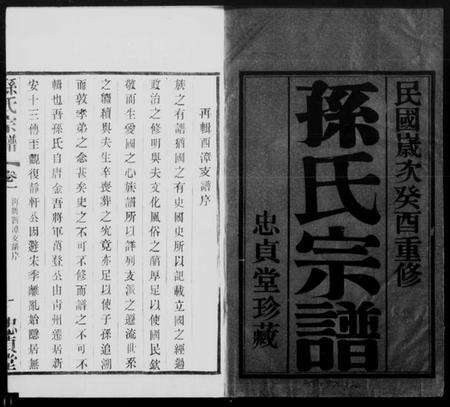 民國歲次癸酉重修
孫氏宗譜
忠貞堂珍藏
再輯西漳支譜序
族之有譜猶國之有史國史所以記載立國之經過
政治之修明與夫文化風俗之蘭厚足以使國民欽
敬而生愛國之心族譜所以詳列支派之源流世系
之纘續與夫生卒喪葬之究竟亦足以使子孫追溯
而敦孝弟之念甚矣史之不可不修而譜之不可不
輯也吾孫氏自唐金吾將軍萬登公由青州遷居新
安十三傳至觀復靜軒公因避宋季離亂始隱居無
孫氏宗譜 卷一 西漳支譜序 一 忠貞堂